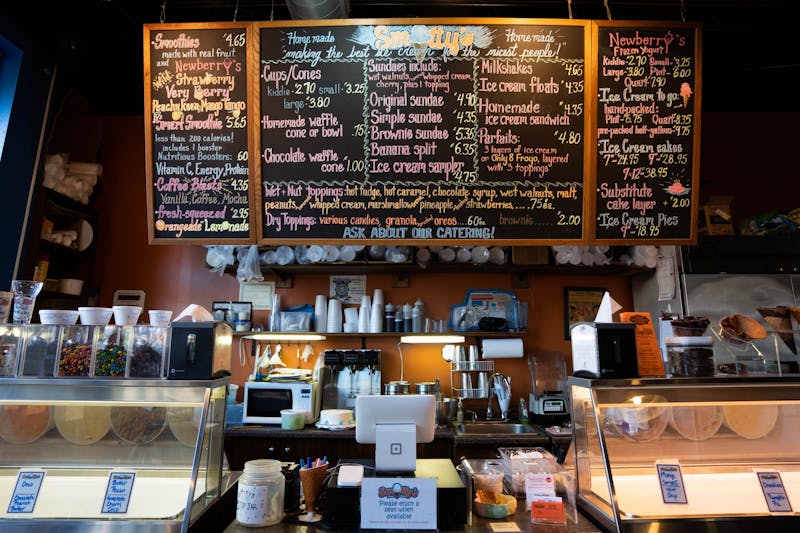 Smoothies 4.65
made with real fruit
and Newberry's
Strawberry
Very Berry
Peachy Keen, Mango Tango
Smart Smoothie 5.65
less than 200 calories!
includes 1 booster
Nutritious Boosters: .60
Vitamin C, Energy, Protein
Coffee Blasts 4.35
Vanilla, Coffee, Mocha
fresh-squeezed 2.95
Orangeade Lemonade
Homemade Smotty's Homemade
"making the best ice cream for the nicest people!"
Cups/Cones
kiddie-2.70 small-3.25
large-3.80
Homemade waffle
cone or bowl .75
Chocolate waffle
cone 1.00
Sundaes include:
wet walnuts, whipped cream,
cherry, plus 1 topping
Original sundae 4.90
Simple sundae 4.35
Brownie sundae 5.35
Banana split 6.35
Ice cream sampler 4.75
Milkshakes 4.65
Ice cream floats 4.35
Homemade
ice cream sandwich 4.35
Parfaits: 4.80
3 layers of ice cream
or Only 8 Froyo, layered
with 3 toppings
Wet + Nut toppings: hot fudge, hot caramel, chocolate syrup, wet walnuts, malt,
peanuts, whipped cream, marshmallow, pineapple, strawberries, .....75 ea.
Dry Toppings: various candies, granola, oreos .. .60 brownie 2.00
ASK ABOUT OUR CATERING!
Newberry's
Frozen Yogurt
kiddie- Small-
2.80 3.35
Large- Pint-
3.90 6.00
Quart 7.90
Ice Cream to go:
hand-packed:
Pint-5.75 Quart-8.35
pre-packed half-gallons 9.75
Ice Cream cakes
7"-24.95 9"-28.95
9×12-38.95
Substitute
cake layer +2.00
Ice Cream Pies
9"-18.95
Please enjoy a
seat when
available